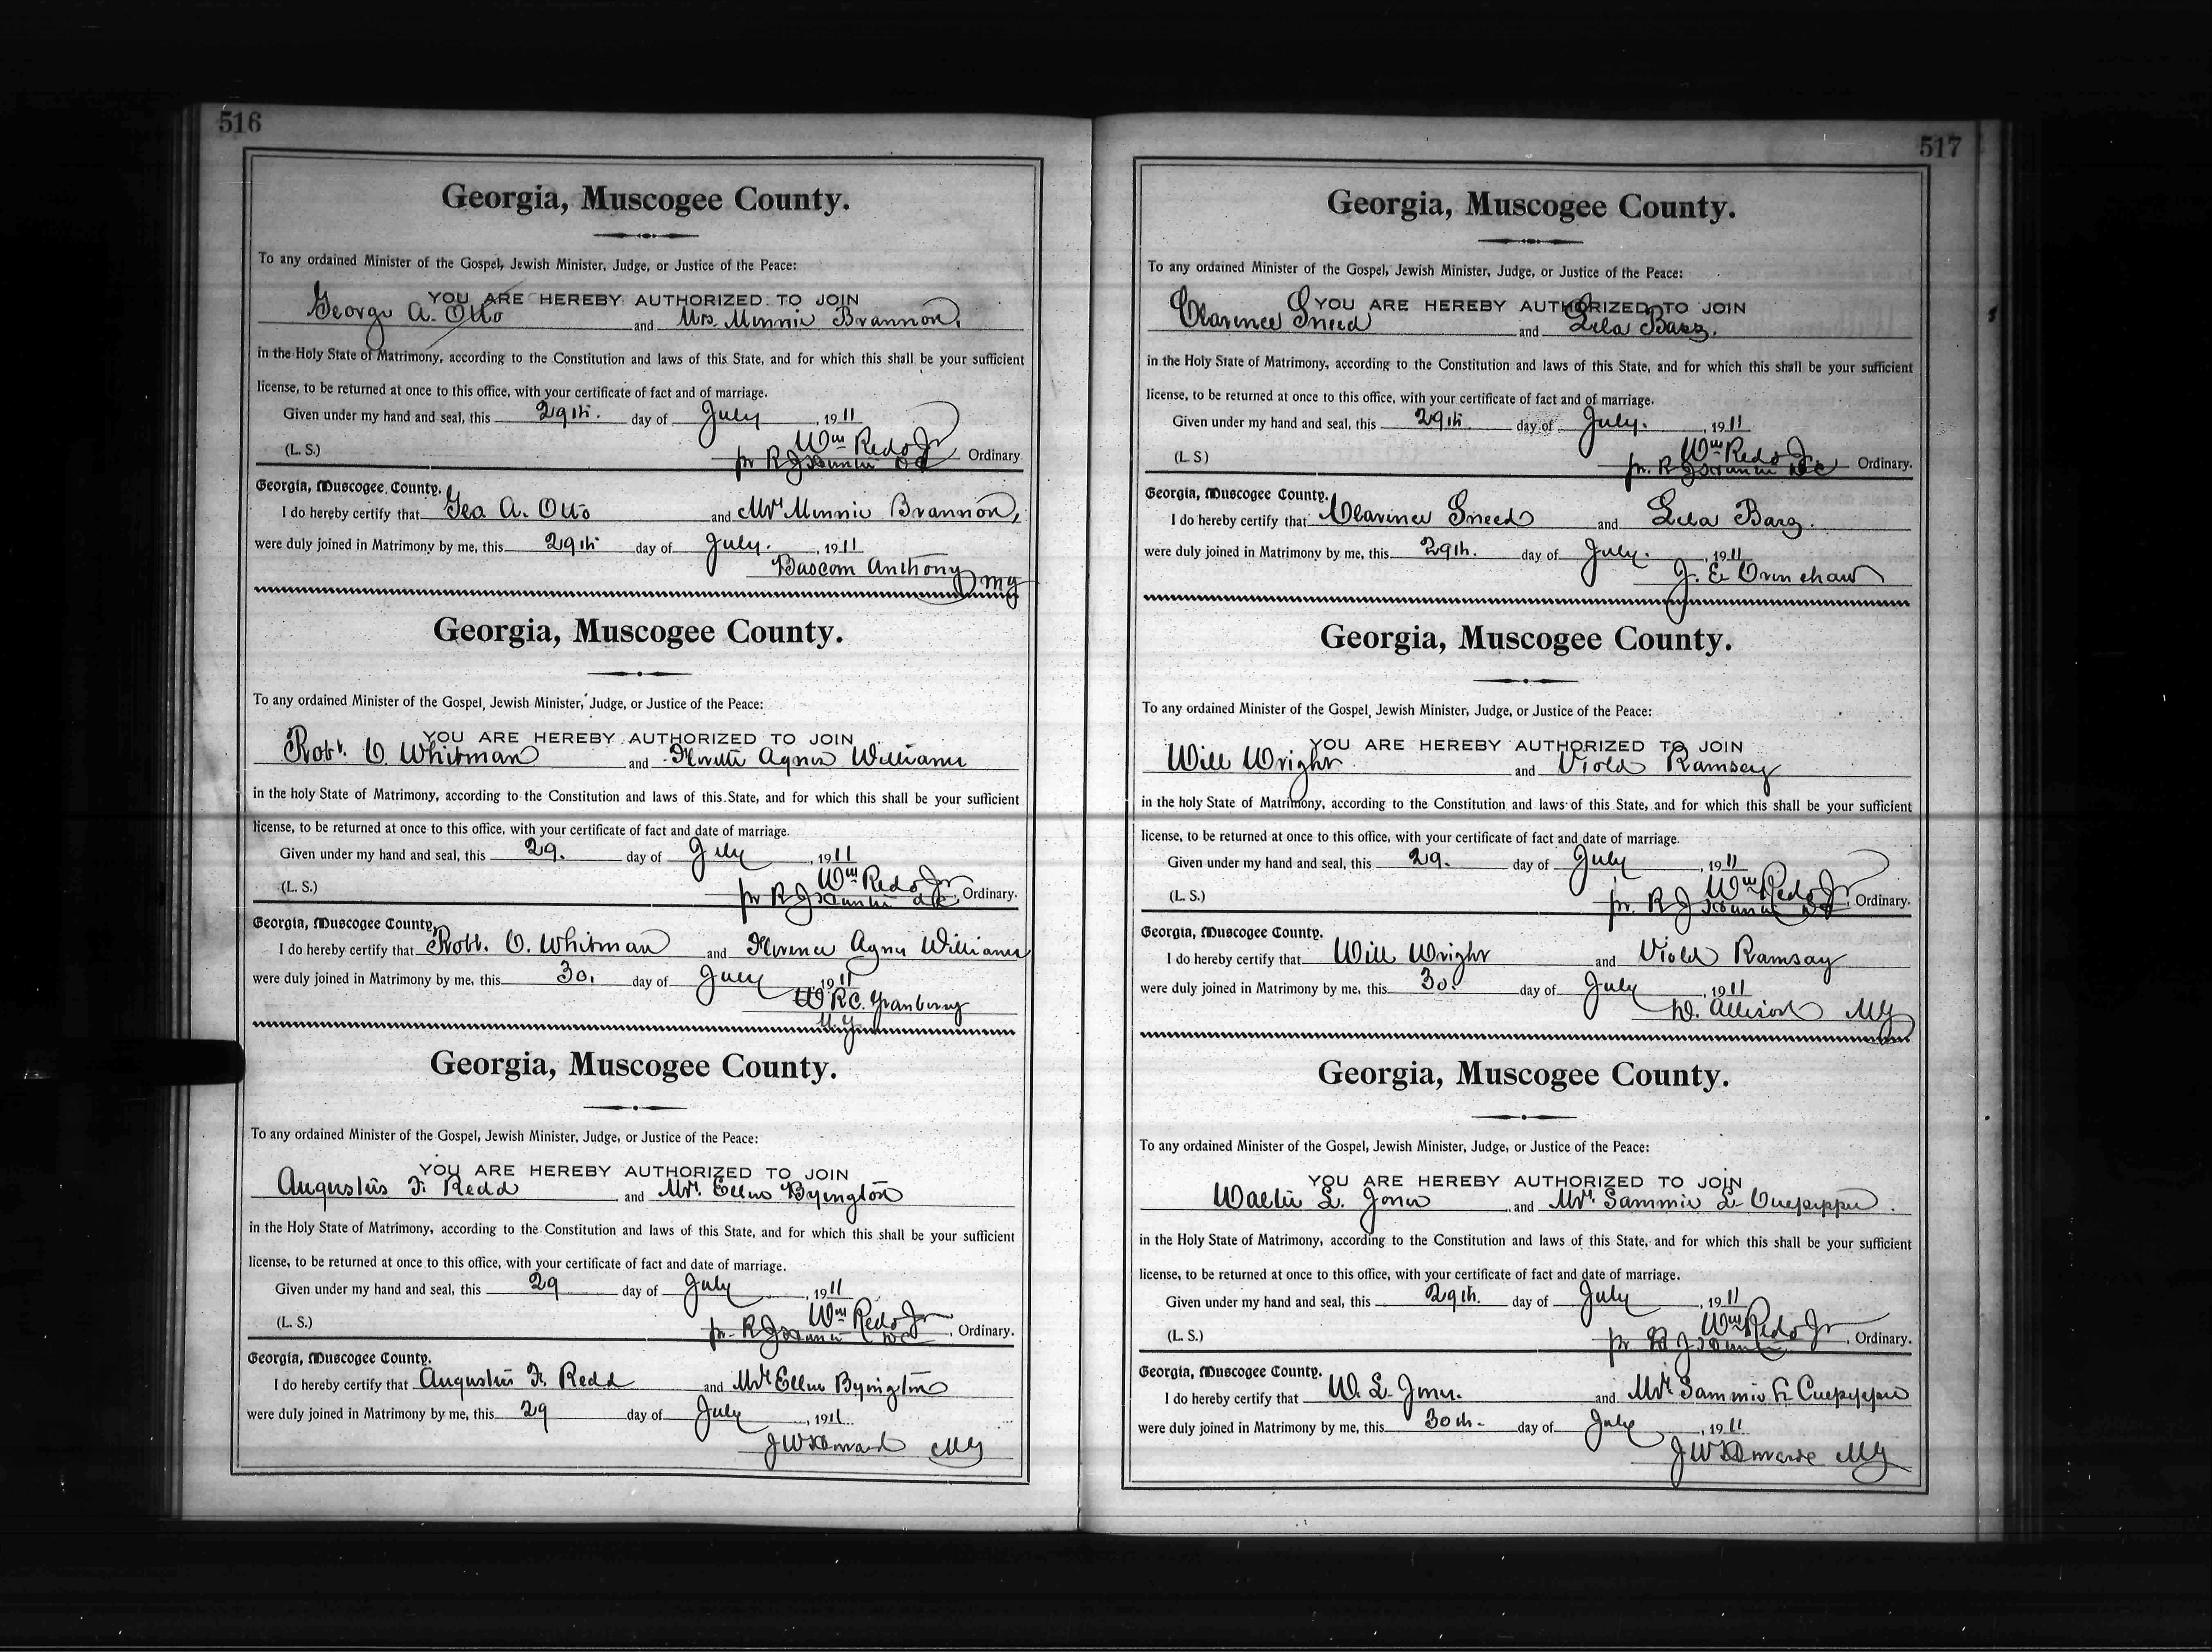 516
Georgia, Muscogee County.
To any ordained Minister of the Gospel, Jewish Minister, Judge, or Justice of the Peace:
YOU ARE HEREBY AUTHORIZED TO JOIN
George A. Otto and Mrs. Minnie Brannon,
in the Holy State of Matrimony, according to the Constitution and laws of this State, and for which this shall be your sufficient
license, to be returned at once to this office, with your certificate of fact and of marriage.
Given under my hand and seal, this 29th. day of July, 1911
Wm Redd Jr
(L. S.) pr R J Ordinary
Georgia, Muscogee County.
I do hereby certify that Geo. A. Otto and Mrs Minnie Brannon,
were duly joined in Matrimony by me, this 29th day of July. , 1911
Bascom Anthony MG
Georgia, Muscogee County.
To any ordained Minister of the Gospel, Jewish Minister, Judge, or Justice of the Peace:
YOU ARE HEREBY AUTHORIZED TO JOIN
Robt. O. Whitman and Agnes Williams
in the holy State of Matrimony, according to the Constitution and laws of this State, and for which this shall be your sufficient
license, to be returned at once to this office, with your certificate of fact and date of marriage.
Given under my hand and seal, this 29. day of July , 1911
Wm Redd Jr
(L. S.) pr R J Ordinary.
Georgia, Muscogee County,
I do hereby certify that Robt. O. Whitman and Florence Agnes Williams
were duly joined in Matrimony by me, this 30. day of July , 1911
W R C. Granberry
M.G.
Georgia, Muscogee County.
To any ordained Minister of the Gospel, Jewish Minister, Judge, or Justice of the Peace:
YOU ARE HEREBY AUTHORIZED TO JOIN
Augustus F. Redd and Mrs. Ellen Byington
in the Holy State of Matrimony, according to the Constitution and laws of this State, and for which this shall be your sufficient
license, to be returned at once to this office, with your certificate of fact and date of marriage.
Given under my hand and seal, this 29 day of July , 1911
Wm Redd Jr
(L. S.) pr R J Ordinary.
Georgia, Muscogee County.
I do hereby certify that Augustus F. Redd and Mrs Ellen Byington
were duly joined in Matrimony by me, this 29 day of July , 1911.
J W Howard MG
517
Georgia, Muscogee County.
To any ordained Minister of the Gospel, Jewish Minister, Judge, or Justice of the Peace:
YOU ARE HEREBY AUTHORIZED TO JOIN
Clarence Sneed and Lula
in the Holy State of Matrimony, according to the Constitution and laws of this State, and for which this shall be your sufficient
license, to be returned at once to this office, with your certificate of fact and of marriage.
Given under my hand and seal, this 29th day of July. , 1911
Wm Redd Jr
(L S) pr. R J Ordinary.
Georgia, Muscogee County.
I do hereby certify that Clarence Sneed and Lula
were duly joined in Matrimony by me, this 29th. day of July. , 1911
J. E.
Georgia, Muscogee County.
To any ordained Minister of the Gospel, Jewish Minister, Judge, or Justice of the Peace:
YOU ARE HEREBY AUTHORIZED TO JOIN
Will Wright and Viola Ramsey
in the holy State of Matrimony, according to the Constitution and laws of this State, and for which this shall be your sufficient
license, to be returned at once to this office, with your certificate of fact and date of marriage.
Given under my hand and seal, this 29. day of July , 1911
Wm Redd Jr
(L. S.) pr. R J Ordinary.
Georgia, Muscogee County.
I do hereby certify that Will Wright and Viola Ramsay
were duly joined in Matrimony by me, this 30. day of July , 1911
Allison MG
Georgia, Muscogee County.
To any ordained Minister of the Gospel, Jewish Minister, Judge, or Justice of the Peace:
YOU ARE HEREBY AUTHORIZED TO JOIN
Walter L. Jones and Mrs. Sammie L. Culpepper.
in the Holy State of Matrimony, according to the Constitution and laws of this State, and for which this shall be your sufficient
license, to be returned at once to this office, with your certificate of fact and date of marriage.
Given under my hand and seal, this 29th. day of July , 1911
Wm Redd Jr
(L. S.) pr R J Ordinary.
Georgia, Muscogee County.
I do hereby certify that W. L. Jones. and Mrs Sammie Culpepper
were duly joined in Matrimony by me, this 30th. day of July , 1911.
J W Howard MG